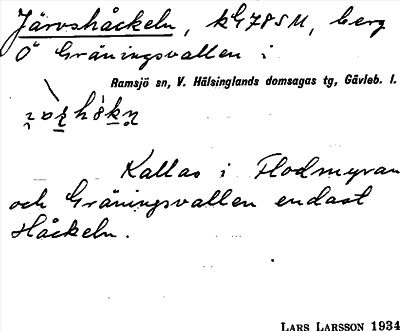 Järvshåckeln, kG78SM, berg
Ö Gräningsvallen i
Ramsjö sn, V. Hälsinglands domsagas tg, Gävleb. l.
Kallas i Flodmyran
och Gräningsvallen endast
Håckeln.
LARS LARSSON 1934